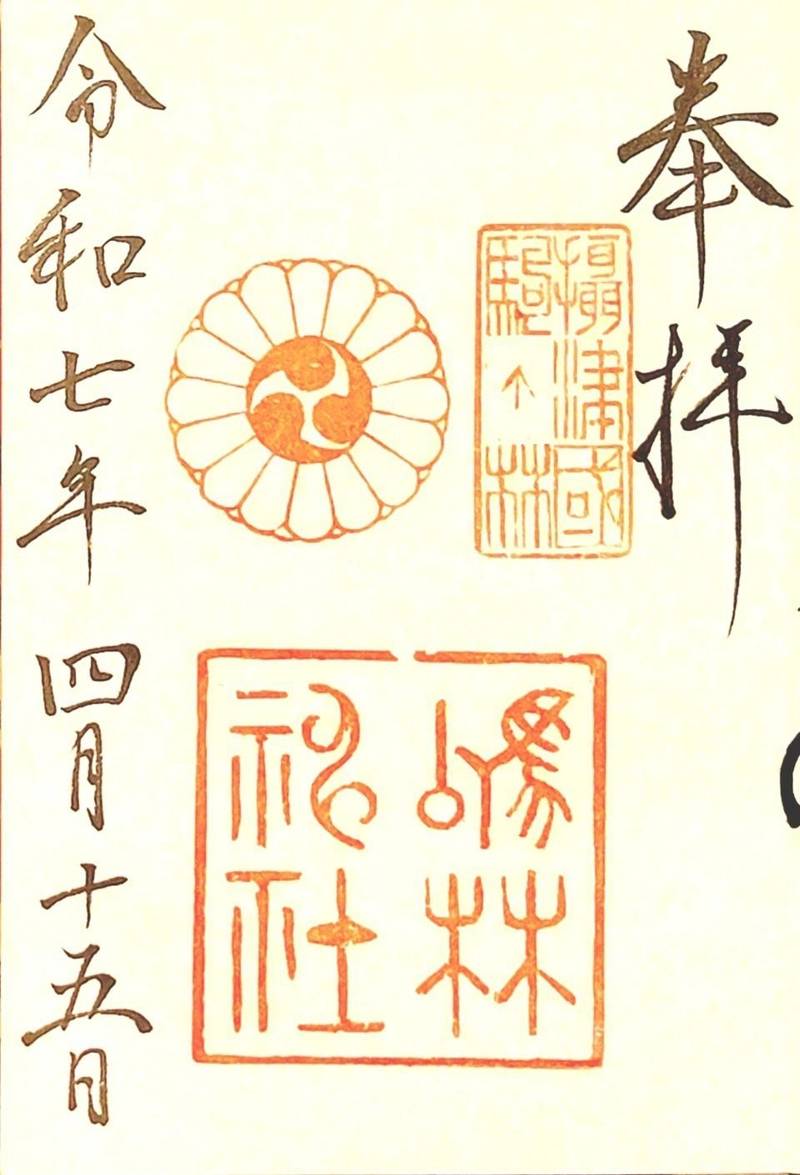 奉拝
攝津國
駒ヶ林
駒林
神社
令和七年四月十五日